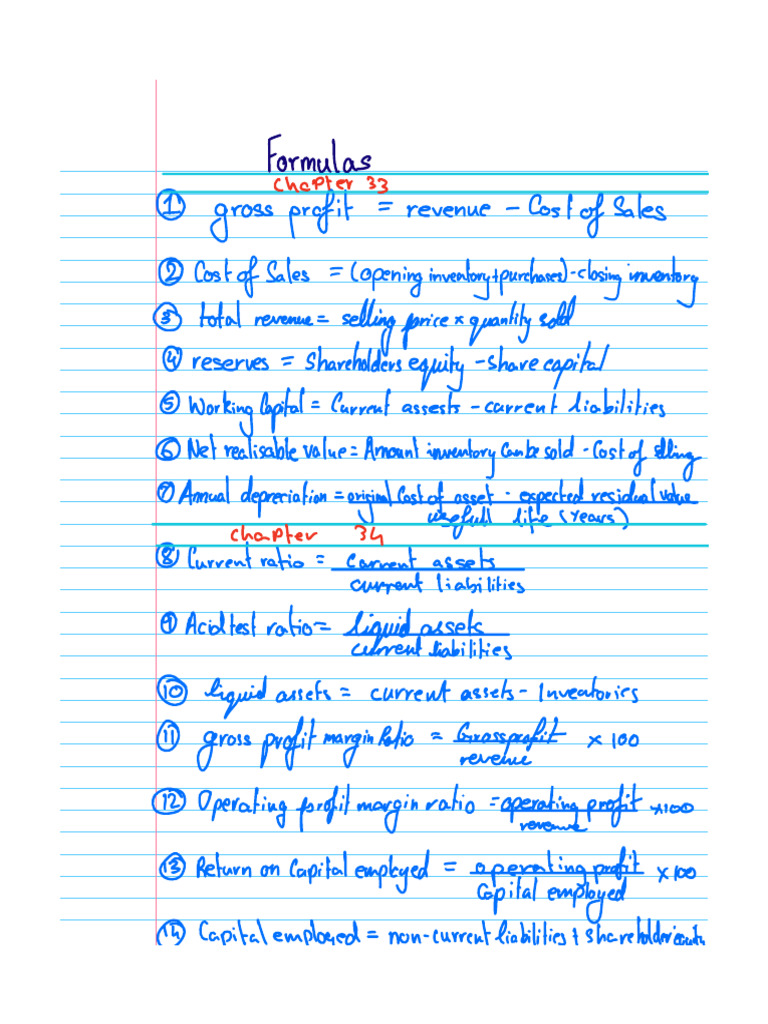 Formulas
Chapter 33
① gross profit = revenue - Cost of Sales
② Cost of Sales = (opening inventory + purchases) - closing inventory
③ total revenue = selling price × quantity sold
④ reserves = Shareholders equity - share capital
⑤ Working Capital = Current assests - current liabilities
⑥ Net realisable value = Amount inventory can be sold - Cost of selling
⑦ Annual depreciation = original Cost of asset - expected residual value
usefull life (years)
Chapter 34
⑧ Current ratio = current assets
current liabilities
⑨ Acid test ratio = liquid assets
current liabilities
⑩ liquid assets = current assets - Inventories
⑪ gross profit margin Ratio = Gross profit × 100
revenue
⑫ Operating profit margin ratio = operating profit × 100
revenue
⑬ Return on Capital employed = operating profit × 100
Capital employed
⑭ Capital employed = non-current liabilities + shareholder